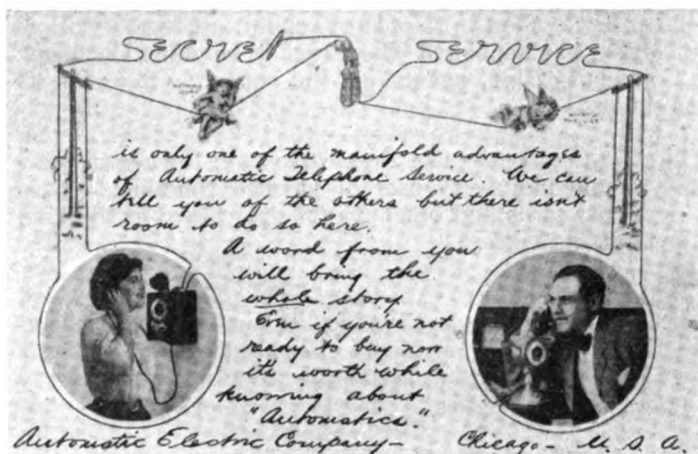 SECRET SERVICE
is only one of the manifold advantages
of Automatic Telephone Service. We can
tell you of the others but there isn't
room to do so here.
A word from you
will bring the
whole story
Even if you're not
ready to buy now
it's worth while
knowing about
"Automatics."
Automatic Electric Company—
Chicago— U. S. A.